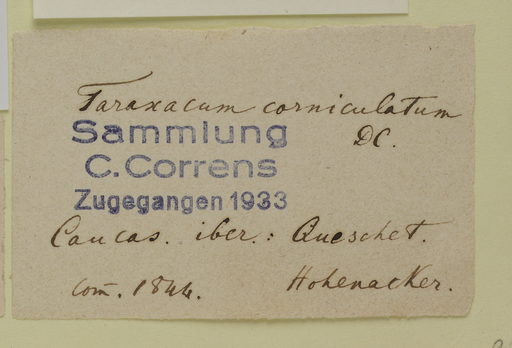 Taraxacum corniculatum
DC.
Sammlung
C. Correns
Zugegangen 1933
Caucas. iber.: Queschet.
com. 1844.
Hohenacker.